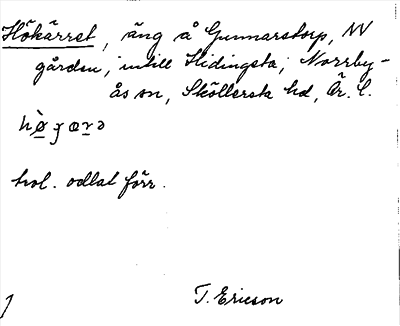 Hökärret, äng å Gunnarstorp, NV
gården, intill Hidingsta, Norrby-
ås sn, Sköllersta hd, Är. l.
trol. odlat förr.
T. Ericson